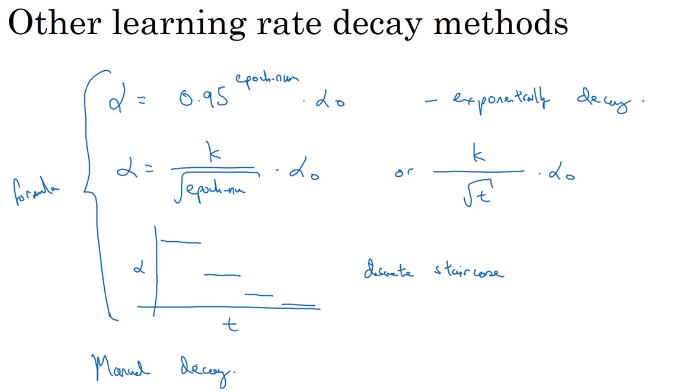 Other learning rate decay methods
α = 0.95^epoch-num · α₀ – exponentially decay.
formula
α = k / √epoch-num · α₀ or k / √t · α₀
α
discrete staircase
t
Manual decay.